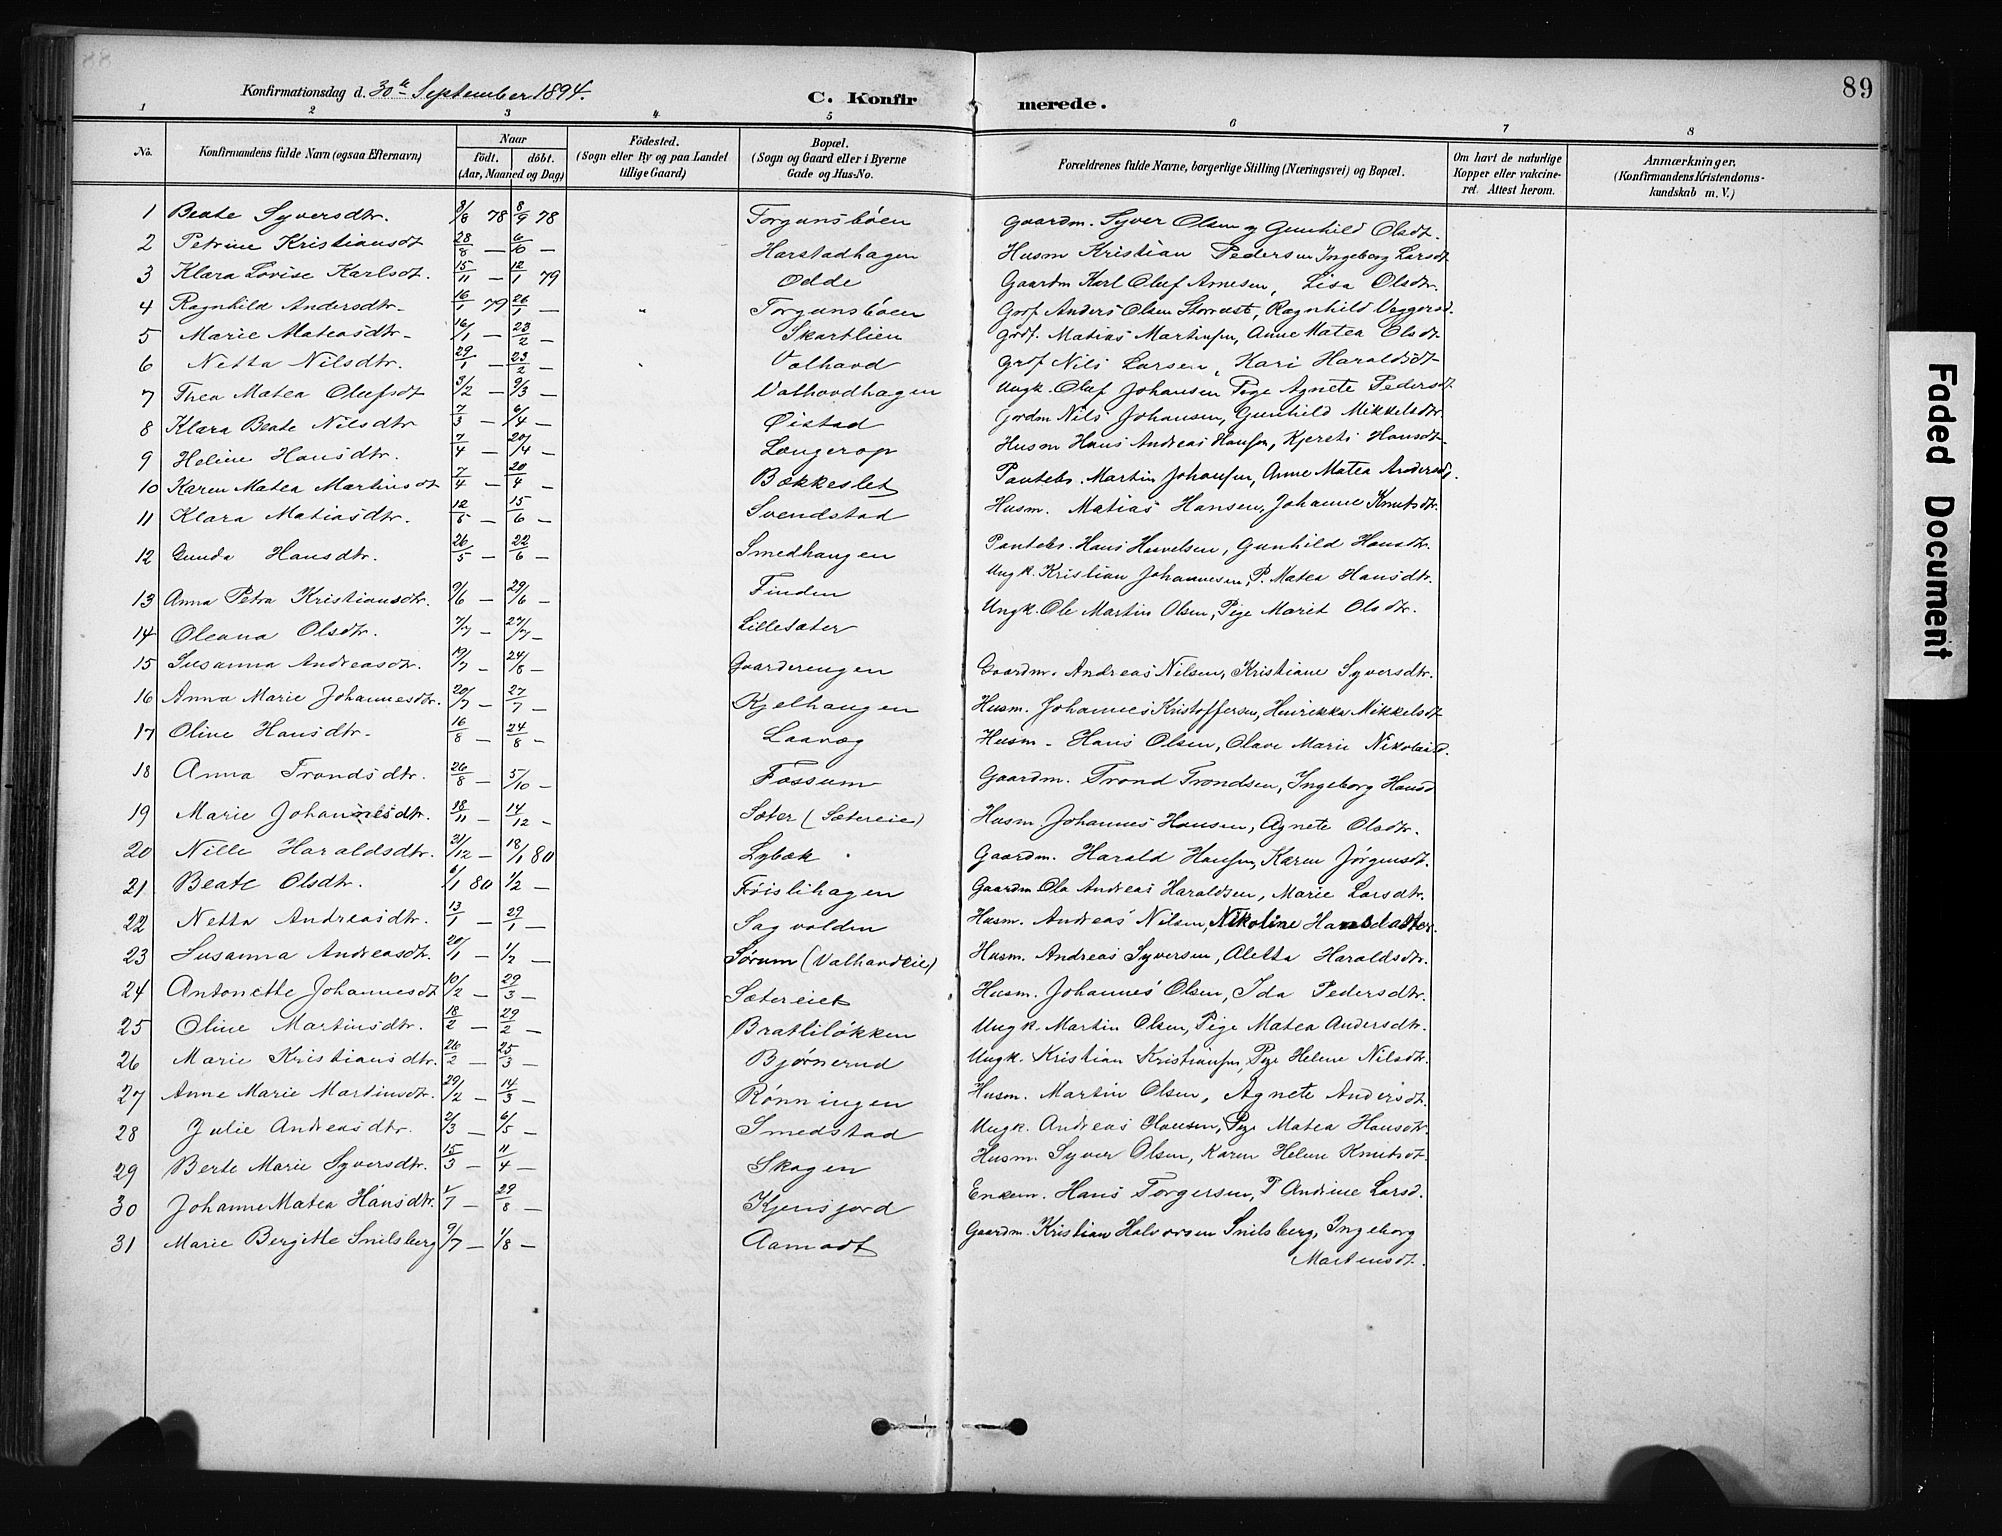 89
Konfirmationsdag d. 30te September 1894.
C. Konfirmerede.
1 2 3 4 5 6 7 8
No. Konfirmandens fulde Navn (ogsaa Efternavn) Naar födt. döbt. (Aar, Maaned og Dag) Födested. (Sogn eller By og paa Landet tillige Gaard) Bopæl. (Sogn og Gaard eller i Byerne Gade og Hus-No. Forældrenes fulde Navne, borgerlige Stilling (Næringsvei) og Bopæl. Om havt de naturlige Kopper eller vakcineret. Attest herom. Anmærkninger. (Konfirmandens Kristendomskundskab m. V.)
1 Beate Syversdtr. 3/8 78 8/9 78 Torgunsböen Gaardm. Syver Olsen og Gunhild Olsdt.
2 Petrine Kristiansdt 28/8 — 6/10 — Harstadhagen Husm Kristian Pedersen Ingeborg Larsdt
3 Klara Lovise Karlsdt. 15/11 — 12/1 79 Odde Gaardm Karl Oluf Arnesen, Lisa Olsdtr.
4 Ragnhild Andersdtr. 16/1 79 26/1 — Torgunsböen Grdf. Anders Olsen, Ragnhild
5 Marie Mateasdtr. 16/1 — 23/2 — Skartlien Grdf. Matias Martinsen, Anne Matea Olsdt
6 Netta Nilsdtr. 29/1 — 23/2 — Valhovd Grdf Nils Larsen, Kari Haraldsdt
7 Thea Matea Olufsdt 3/2 — 9/3 — Valhovdhagen Ungk. Oluf Johansen Pige Agnete Pedersdt.
8 Klara Beate Nilsdtr 7/3 — 6/4 — Öistad Grdm Nils Johansen, Gunhild Mikkelsdtr
9 Heline Hansdtr. 7/4 — 20/4 — Longerop Husm Hans Andreas Hansen, Kjersti Hansdt
10 Karen Matea Martinsdt 7/4 — 20/4 — Bækkeslet Pantebr. Martin Johansen, Anne Matea Andersdt.
11 Klara Matiasdtr. 12/5 — 15/6 — Svendstad Husm. Matias Hansen, Johanne Knutsdtr.
12 Gunda Hansdtr. 26/5 — 22/6 — Smedhaugen Pantebr. Hans, Gunhild Hansdtr.
13 Anna Petra Kristiansdtr. 9/6 — 29/6 — Finden Ungk. Kristian Johannesen, P. Matea Hansdtr.
14 Oleana Olsdtr. 7/7 — 27/7 — Lillesæter Ungk. Ole Martin Olsen, Pige Marit Olsdtr.
15 Susanna Andreasdtr. 19/7 — 24/8 — Gaarderengen Gaardm. Andreas Nilsen, Kristiane Syversdtr.
16 Anna Marie Johannesdtr. 20/7 — 27/7 — Kjelhaugen Husm. Johannes Kristoffersen, Henrikka Mikkelsdt
17 Oline Hansdtr. 16/8 — 24/8 — Laaveg Husm. Hans Olsen, Olave Marie Nikolaisd.
18 Anna Trondsdtr. 26/8 — 5/10 — Fossum Gaardm. Trond Trondsen, Ingeborg Hansd
19 Marie Johannesdtr. 18/11 — 14/12 — Sæter (Sætereie) Husm Johannes Hansen, Agnete Olsdtr.
20 Nille Haraldsdtr. 31/12 — 18/1 80 Lybæk Gaardm. Harald Hansen, Karen Jörgensdt.
21 Beate Olsdtr. 6/1 80 1/2 — Föislihagen Gaardm Ola Andreas Haraldsen, Marie Larsdtr.
22 Netta Andreasdtr. 13/1 — 29/1 — Sagvolden Husm. Andreas Nilsen, Nikoline Hansdatter.
23 Susanna Andreasdtr. 20/1 — 1/2 — Sörum (Valhavdeie) Husm. Andreas Syversen, Aletta Haraldsdtr.
24 Antonette Johannesdt 10/2 — 29/3 — Sætereiet Husm. Johannes Olsen, Ida Pedersdtr.
25 Oline Martinsdtr. 18/2 — 29/2 — Bratlilökken Ungk. Martin Olsen, Pige Matea Andersdtr.
26 Marie Kristiansdtr. 26/2 — 25/3 — Bjørnerud Ungk. Kristian Kristiansen, Pige Helene Nilsdtr.
27 Anne Marie Martinsdtr. 29/2 — 14/3 — Rönningen Husm. Martin Olsen, Agnete Andersdt.
28 Julie Andreasdtr. 2/3 — 6/5 — Smedstad Ungk. Andreas Hansen, Pige Matea Hansdtr.
29 Berte Marie Syversdtr. 15/3 — 11/4 — Skogen Husm. Syver Olsen, Karen Helene Knutsdt.
30 Johanne Matea Hansdtr. /7 — 29/8 — Kjensjord Enkem. Hans Torgersen, P Andrine Larsd.
31 Marie Bergitte Snilsberg 9/7 — 1/8 — Aamodt Gaardm. Kristian Halvorsen Snilsberg, Ingeborg
Martinsdt.
Faded Document